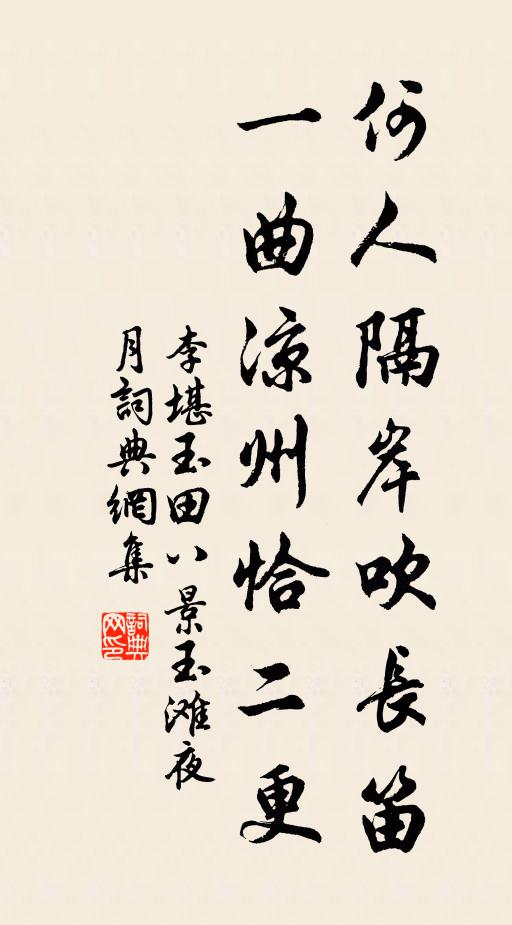 何人隔岸吹長笛
一曲凉州恰二更
李堪玉田八景玉滩夜
月詞典網集
詞典网印